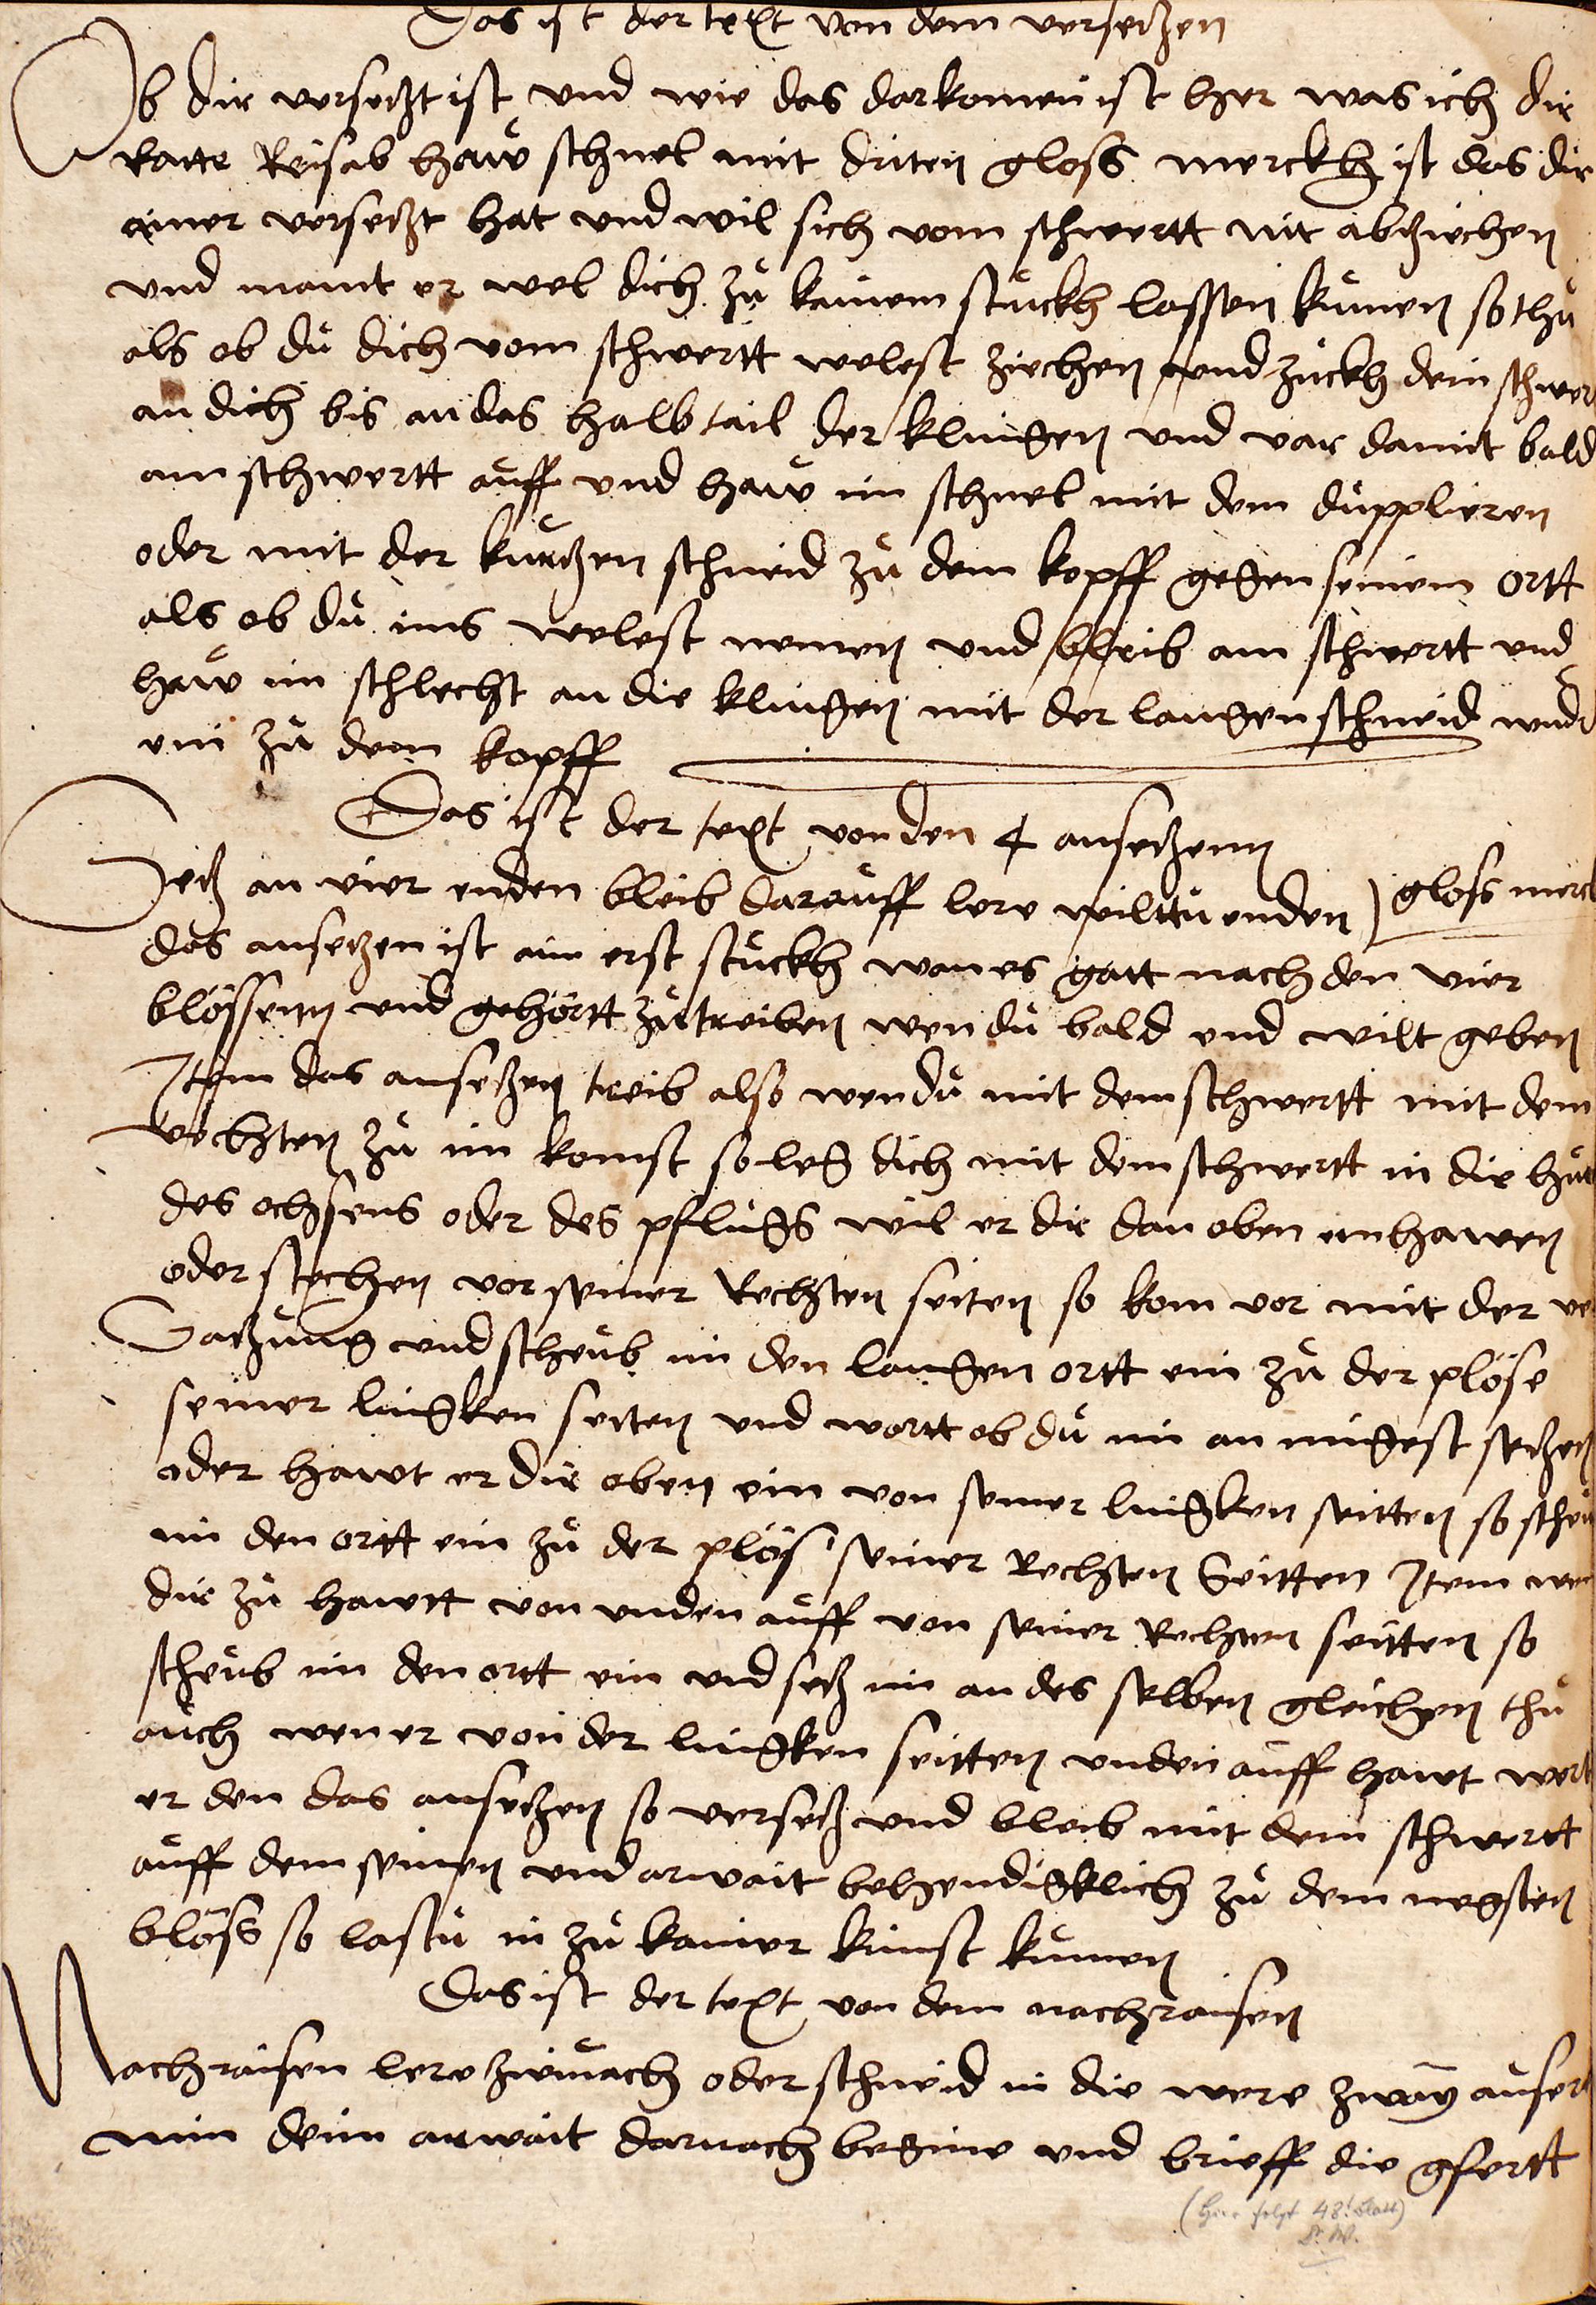 Das ist der text von dem verseczen
Ob dir verseczt ist und wie das darkomen ist her was ich dir
Ratte Reisab haw schnel mit driten gloss merckh ist das dir
ainer verseczt hat und wil sich vom schwertt nit abziechen
und maint er wel dich zů kainem stuckh lassen kumen so thů
als ob dů dich vom schwertt welest ziechen und zuckh dein schwer
an dich bis an das halb tail der klingen und var damit bald
am schwertt auff und haw im schnel mit dem dupplieren
oder mit der kurczen schneid zů dem kopff gegen seinem ortt
als ob dů ims welest nemen und bleib am schwertt und
haw im schlecht an die klingen mit der langen schneid wud
ein zů dem kopff
Das ist der text von den 4 anseczenn
Secz an vier enden bleib darauff lere wilttu enden) gloss merck
das anseczen ist ain erst stuckh wan es gatt nach den vier
blössenn und gehörtt zů treiben wen dů bald end wilt geben
Item das anseczen treib also wen dů mit dem schwertt mit dem
vechten zů im komst so leg dich mit dem schwertt in die hůt
des ochsens oder des pflugs wil er dir dan oben einhawen
oder stechen von seiner Rechten seiten so kom vor mit der ver
Saczung und scheub im den langen ortt ein zů der plöse
seiner lingken seiten und wartt ob dů im an mugest seczen
oder hawt er dir oben ein von seiner lingken seitten so scheu
im den ortt ein zů der plös seiner Rechten Seitten Item wen
dir zů hawtt von unden auff von seiner Rechten seitten so
scheub im den ortt ein und secz im an des selben gleichen thů
auch wen er von der lingken seitten unden auff hawt wert
er den das anseczen so versecz und bleib mit dem schwertt
auff dem seinen und arwait behendigklich zů dem negsten
blöss so lastu in zů kainer kunst kumen
Das ist der text von dem nachraisen
Nachraisen lere zwinach oder schneid in die were zway auser
min dein arwait darnach begine und brieff die gfertt
(hier folgt 48. Blatt)